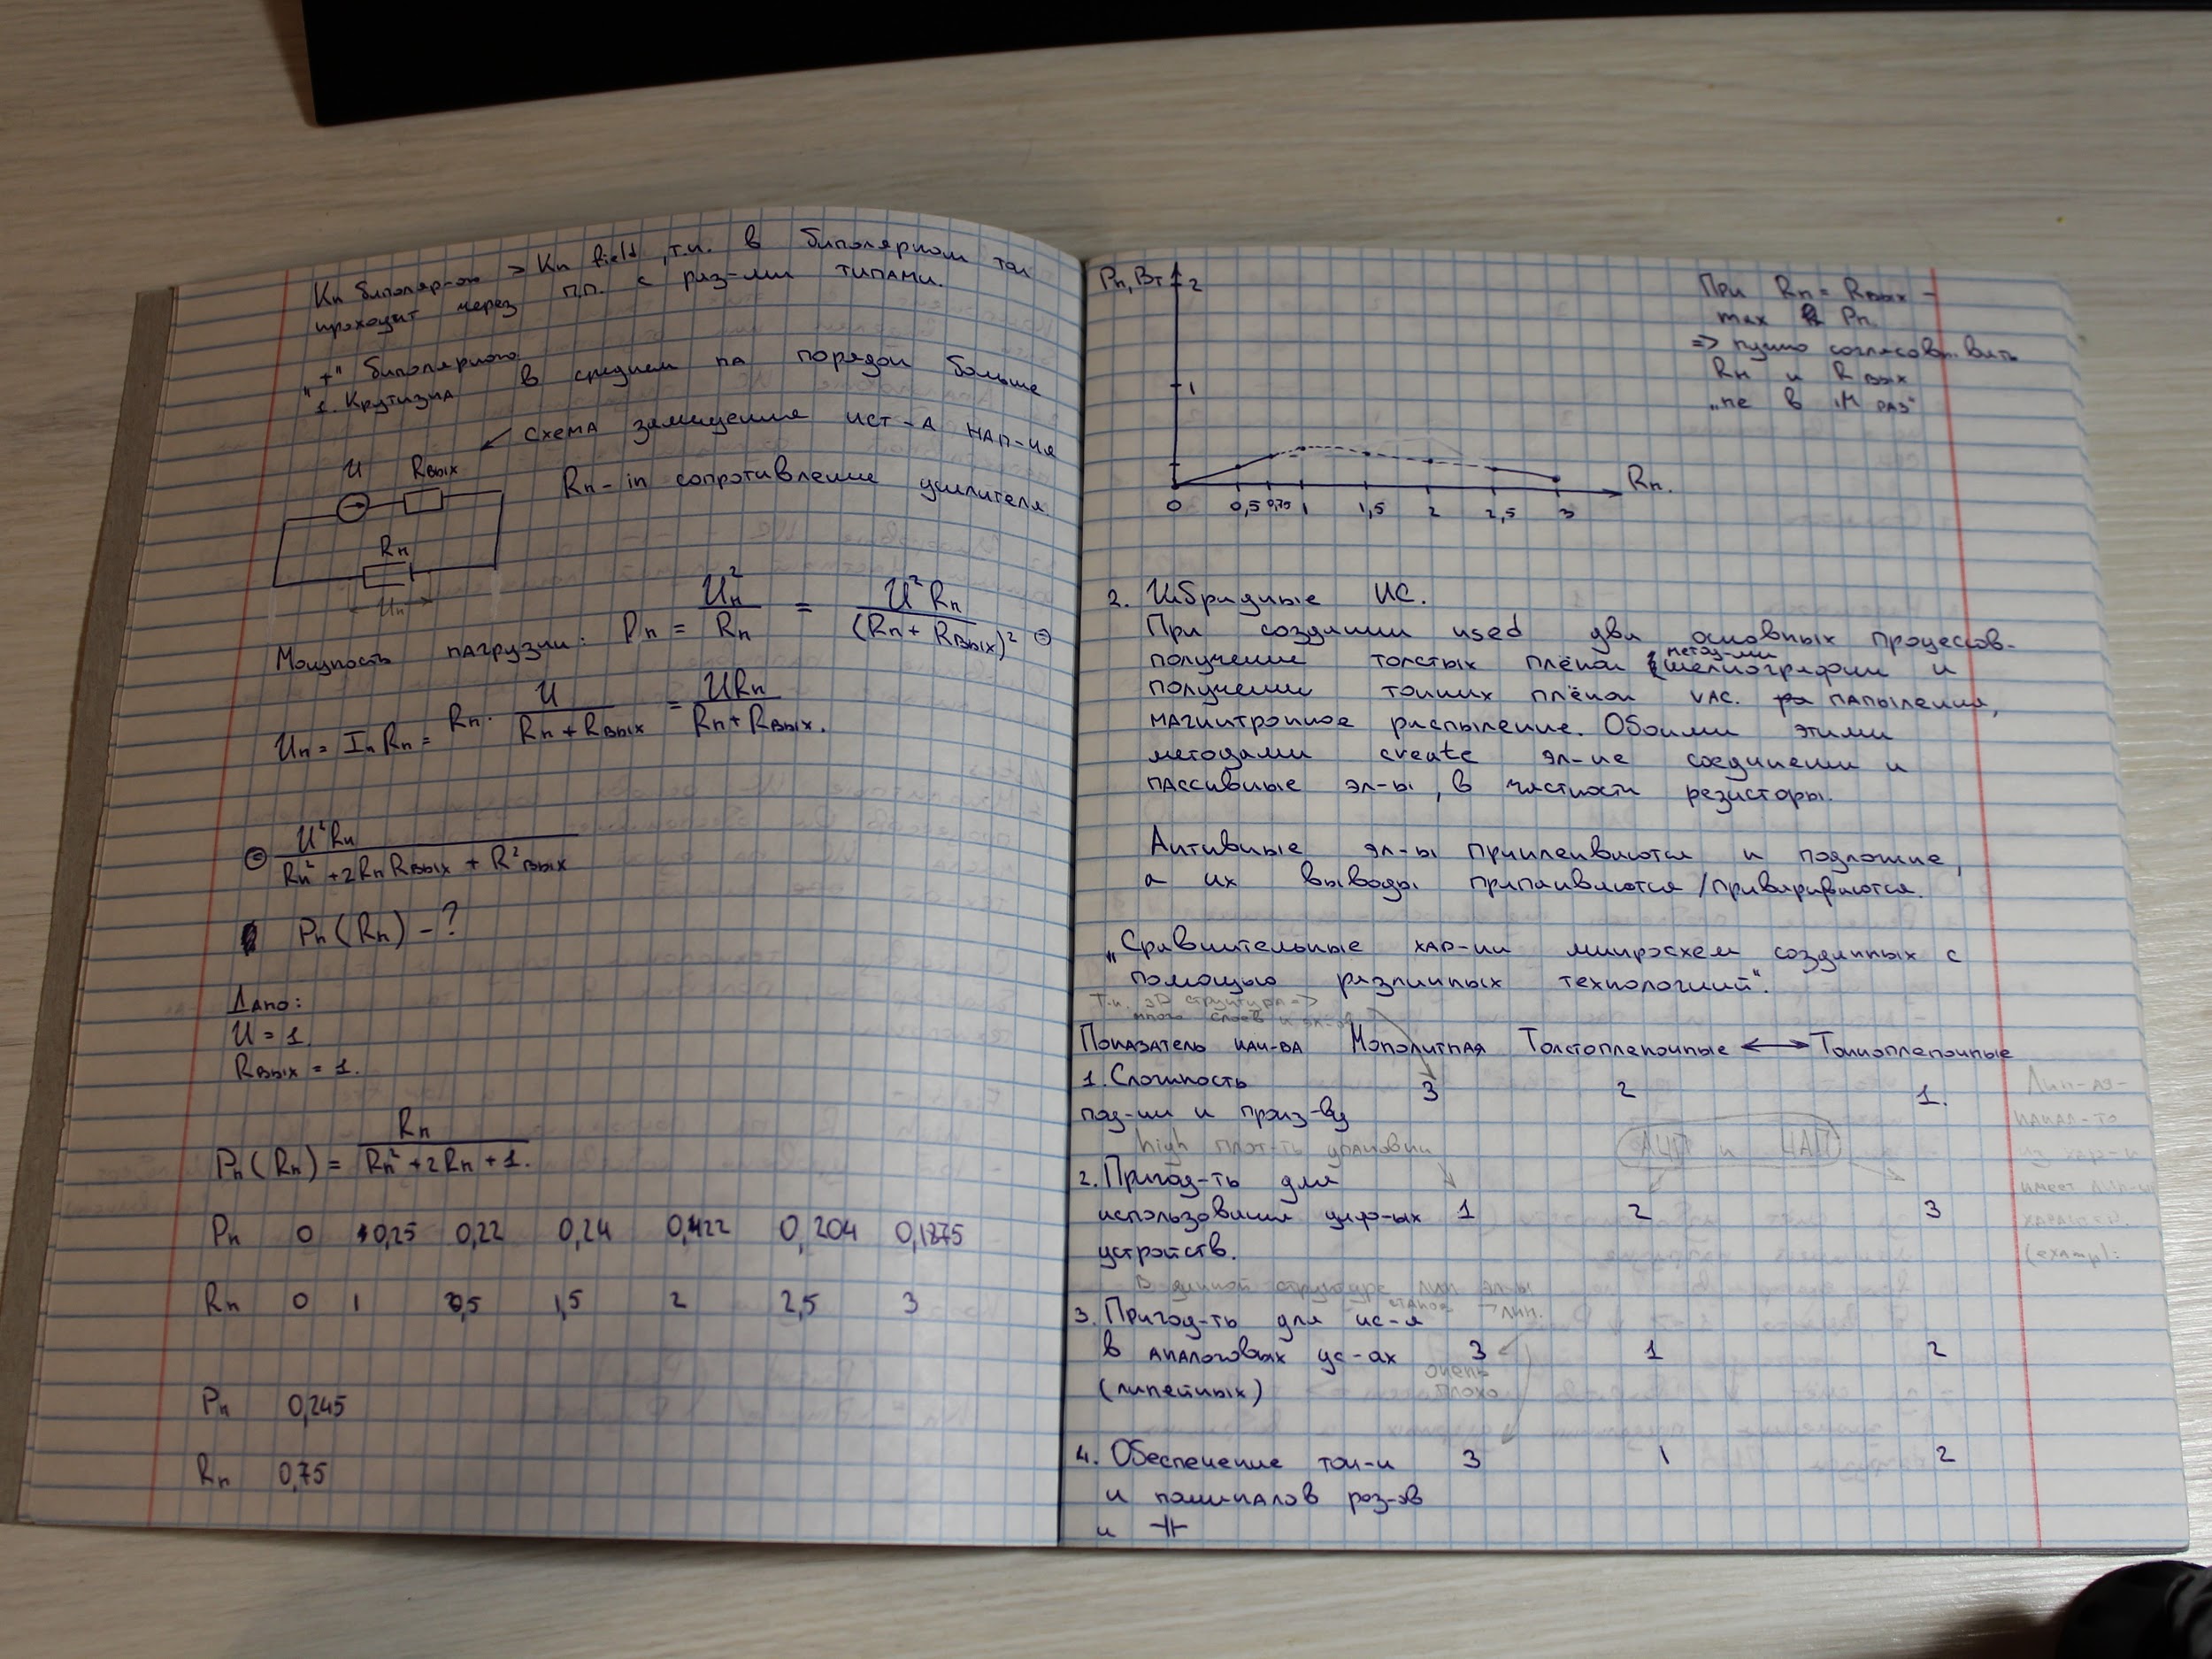 Кп биполяр-ои > Кп field, т.к. в биполярном ток
проходит через п.п. с раз-ми типами.
„+" биполярного:
1. Крутизна в среднем на порядок больше
↙ схема замещения ист-а нап-ия
U Rвых
Rн - in сопротивление усилителя.
Rн
Uн
Мощность нагрузки: Pн = Uн² / Rн = U² Rн / (Rн + Rвых)² ⊜
Uн = Iн Rн = Rн · U / (Rн + Rвых) = URн / (Rн + Rвых).
⊜ U² Rн / (Rн² + 2RнRвых + R²вых)
Pн (Rн) - ?
Дано:
U = 1.
Rвых = 1.
Pн (Rн) = Rн / (Rн² + 2Rн + 1).
Pн 0 0,25 0,22 0,24 0,422 0,204 0,1875
Rн 0 1 0,5 1,5 2 2,5 3
Pн 0,245
Rн 0,75
Pн, Вт 2
1
0 0,5 0,75 1 1,5 2 2,5 3 Rн.
При Rн = Rвых -
max Pн.
=> нужно согласовывать
Rн и Rвых
„не в 1М раз"
2. Гибридные ИС.
При создании used два основных процессов-
получение толстых плёнок метод-ми шелкографии и
получении тонких плёнок vac. напыления,
магнитронное распыление. Обоими этими
методами create эл-ие соединении и
пассивные эл-ы, в частности резисторы.
Активные эл-ы приклеиваются к подложке,
а их выводы припаиваются/привариваются.
„Сравнительные хар-ки микросхем созданных с
помощью различных технологий".
т.к. 3D структура =>
много слоев и эл-ов
Показатель кач-ва Монолитная Толстопленочные ⟷ Тонкопленочные
1. Сложность 3 2 1.
под-ки к произ-ву
high плот-ть упаковки
АЦП и ЦАП
2. Пригод-ть для
использовании циф-ых 1 2 3
устройств.
В данной структуре лин эл-ы
3. Пригод-ть для ис-я
лин.
в аналоговых ус-ах 3 1 2
очень
плохо
(линейных)
4. Обеспечение точ-и 3 1 2
и номиналов рез-ов
и ⊣⊢
имеет лин-ы
(exampl: